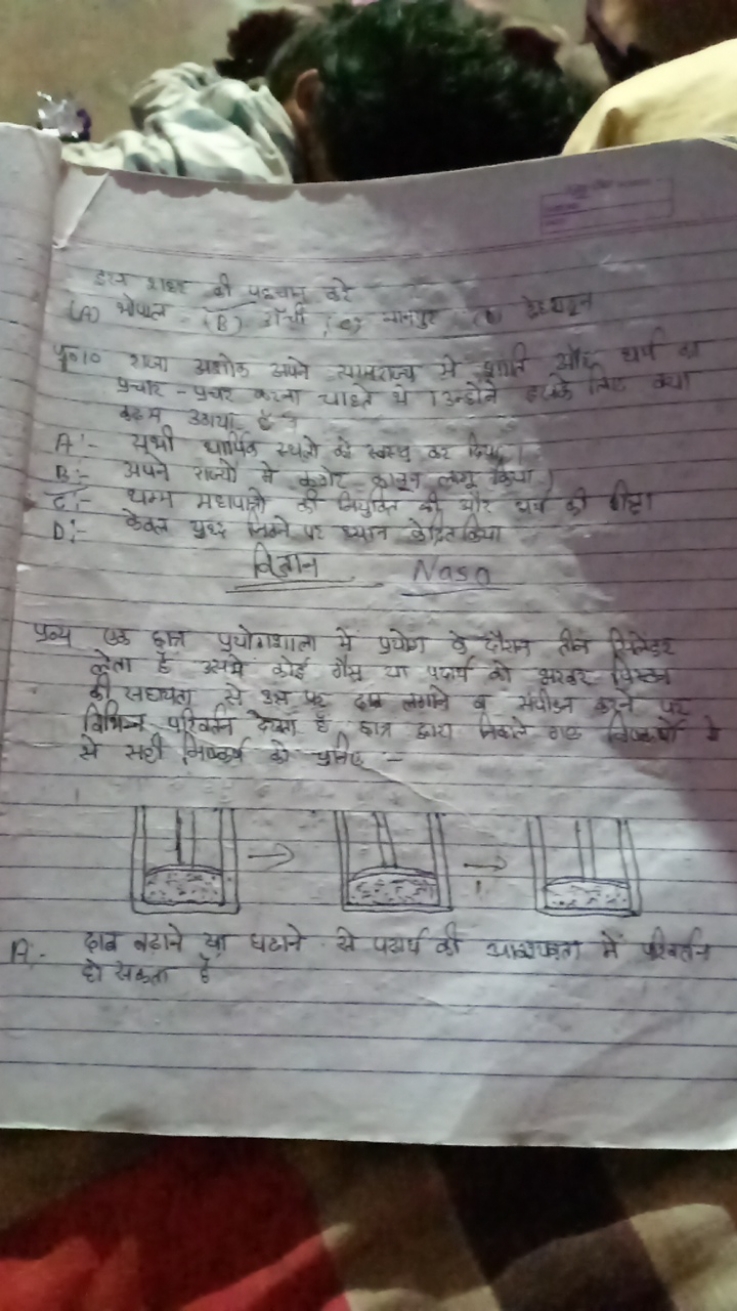 शहर की पहचान करे
(A) भोपाल (B) राँची (C) नागपुर (D) देहरादून
प्र०10 राजा अशोक अपने साम्राज्य मे शांति और धर्म का
प्रचार - प्रचर करना चाहते थे । उन्होंने इसके लिए क्या
कदम उठाया है ?
A:- सभी धार्मिक स्थलो को कर दिया ।
B:- अपने राज्यो मे कठोर कानून लागू किया )
C:- धम्म महापात्रो की नियुक्ति की और धर्म की
D:- केवल युद्ध पर ध्यान केंद्रित किया
विज्ञान Nasa
एक छात्र प्रयोगशाला मे प्रयोग के दौरान तीन सिलेंडर
लेता है उसमे कोई गैस या पदार्थ को भरकर पिस्टन
की सहायता से उस पर दाब लगाने व संपीडन करने पर
विभिन्न परिवर्तन देखता है छात्र द्वारा निकाले गए निष्कर्षो मे
से सही निष्कर्ष को चुनिए -
A:- दाब बढ़ाने या घटाने से पदार्थ की में परिवर्तन
हो सकता है